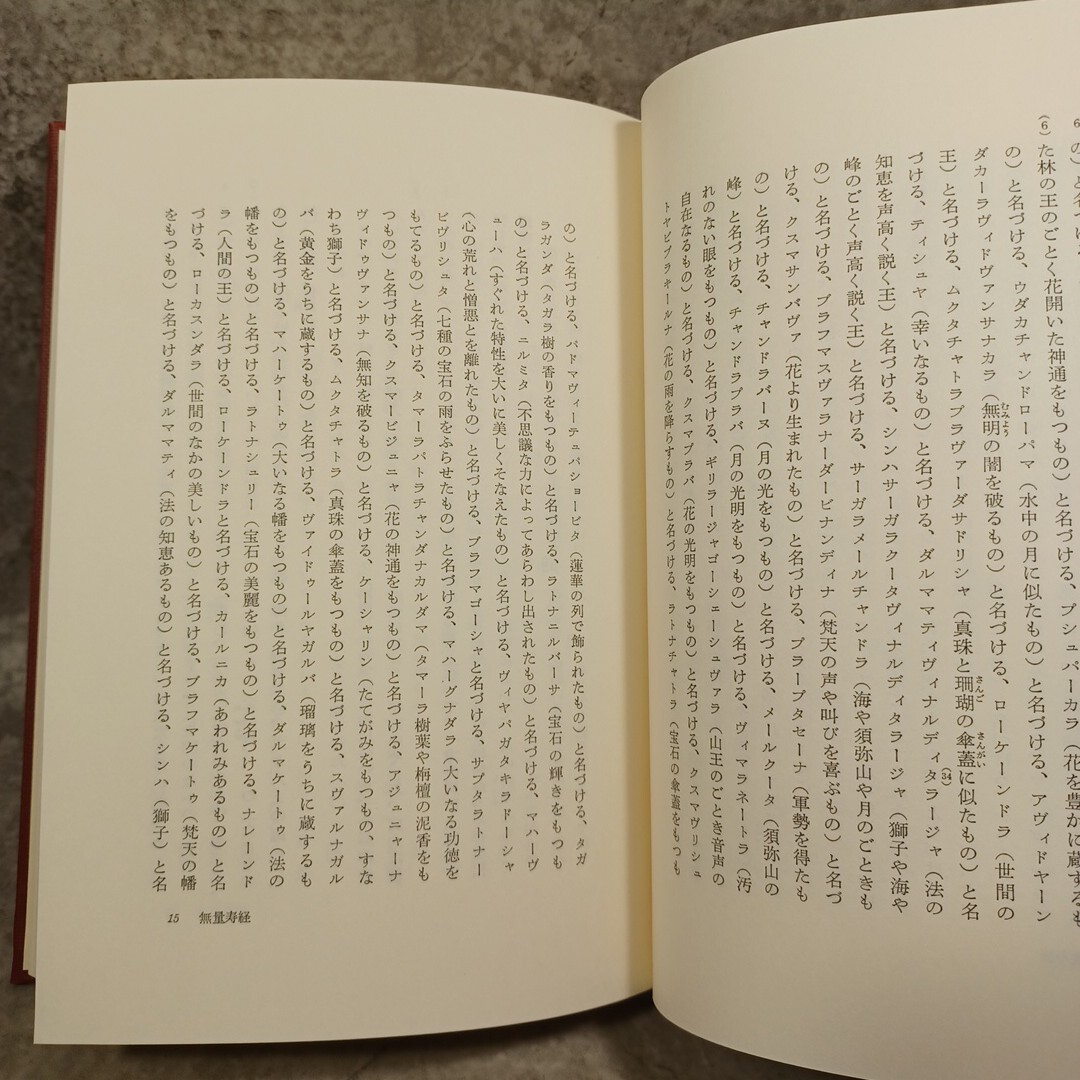 の）と名づけ
（6）た林の王のごとく花開いた神通をもつもの）と名づける、プシュパーカラ（花を豊かに蔵するも
の）と名づける、ウダカチャンドローパマ（水中の月に似たもの）と名づける、アヴィドヤーン
ダカーラヴィドヴァンサナカラ（無明の闇を破るもの）と名づける、ローケーンドラ（世間の
王）と名づける、ムクタチャトラプラヴァーダサドリシャ（真珠と珊瑚の傘蓋に似たもの）と名
づける、ティシュヤ（幸いなるもの）と名づける、ダルママティヴィナルディタラージャ（法の
知恵を声高く説く王）とた名づける、シンハサーガラクータヴィナルディタラージャ（獅子や海や
峰のごとく声高く説く王）と名づける、サーガラメールチャンドラ（海や須弥山や月のごときも
の）と名づける、ブラフマスヴァラナーダービナンディナ（梵天の声や叫びを喜ぶもの）と名づ
ける、クスマサンバヴァ（花より生まれたもの）と名づける、プラープタセーナ（軍勢を得たも
の）と名づける、チャンドラバーヌ（月の光をもつもの）と名づける、メールクータ（須弥山の
峰）と名づける、チャンドラプラバ（月の光明をもつもの）と名づける、ヴィマラネートラ（汚
れのない眼をもつもの）と名づける、ギリラージャゴーシェーシュヴァラ（山王のごとき音声の
自在なるもの）と名づける、クスマプラバ（花の光明をもつもの）と名づける、クスマヴリシュ
トヤビプラキールナ（花の雨を降らすもの）と名づける、ラトナチャトラ（宝石の傘蓋をもつも
の）と名づける、パドマヴィーテュパショービタ（蓮華の列で飾られたもの）と名づける、タガ
ラガンダ（タガラ樹の香りをもつもの）と名づける、ラトナニルバーサ（宝石の輝きをもつも
の）と名づける、ニルミタ（不思議な力によってあらわし出されたもの）と名づける、マハーヴ
ューハ（すぐれた特性を大いに美しくそなえたもの）と名づける、ヴィヤパガタキラドーシャ
（心の荒れと憎悪とを離れたもの）と名づける、ブラフマゴーシャと名づける、サプタラトナー
ビヴリシュタ（七種の宝石の雨をふらせたもの）と名づける、マハーグナダラ（大いなる功徳を
もてるもの）と名づける、タマーラパトラチャンダナカルダマ（タマーラ樹葉や栴檀の泥香をも
つもの）と名づける、クスマービジュニャ（花の神通をもつもの）と名づける、アジュニャーナ
ヴィドゥヴァンサナ（無知を破るもの）と名づける、ケーシャリン（たてがみをもつもの、すな
わち獅子）と名づける、ムクタチャトラ（真珠の傘蓋をもつもの）と名づける、スヴァルナガル
バ（黄金をうちに蔵するもの）と名づける、ヴァイドゥールヤガルバ（瑠璃をうちに蔵するも
の）と名づける、マハーケートゥ（大いなる幡をもつもの）と名づける、ダルマケートゥ（法の
幡をもつもの）と名づける、ラトナシュリー（宝石の美麗をもつもの）と名づける、ナレーンド
ラ（人間の王）と名づける、ローケーンドラと名づける、カールニカ（あわれみあるもの）と名
づける、ローカスンダラ（世間のなかの美しいもの）と名づける、ブラフマケートゥ（梵天の幡
をもつもの）と名づける、ダルママティ（法の知恵あるもの）と名づける、シンハ（獅子）と名
15 無量寿経